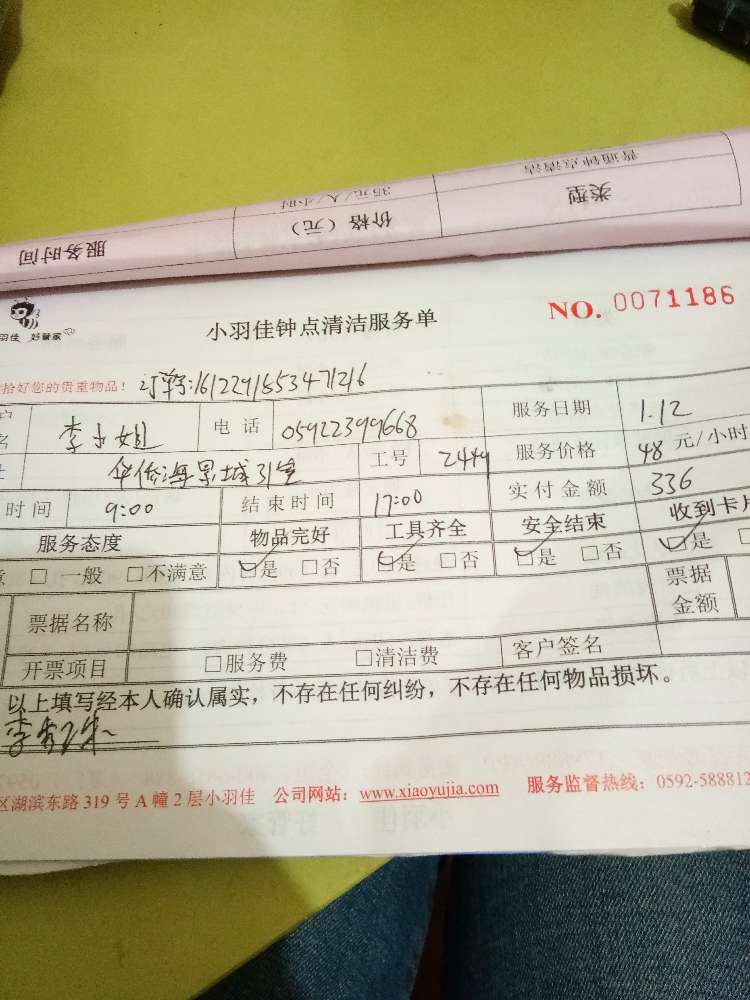 服务时间
价格（元）
类型
35元/人/小时
普通钟点清洁
羽佳 好管家
小羽佳钟点清洁服务单
NO. 0071186
拾好您的贵重物品！ 订单号:1612291553471216
户
名 李小姐 电话 05922399668 服务日期 1.12
址 华侨海景城31堂 工号 2449 服务价格 48 元/小时
时间 9:00 结束时间 17:00 实付金额 336
服务态度 物品完好 工具齐全 安全结束 收到卡片
意 □ 一般 □不满意 □是 □否 □是 □否 □是 □否 □是 □
票据名称 票据金额
开票项目 □服务费 □清洁费 客户签名
以上填写经本人确认属实，不存在任何纠纷，不存在任何物品损坏。
区湖滨东路 319 号 A 幢 2 层小羽佳 公司网站：www.xiaoyujia.com 服务监督热线：0592-588812